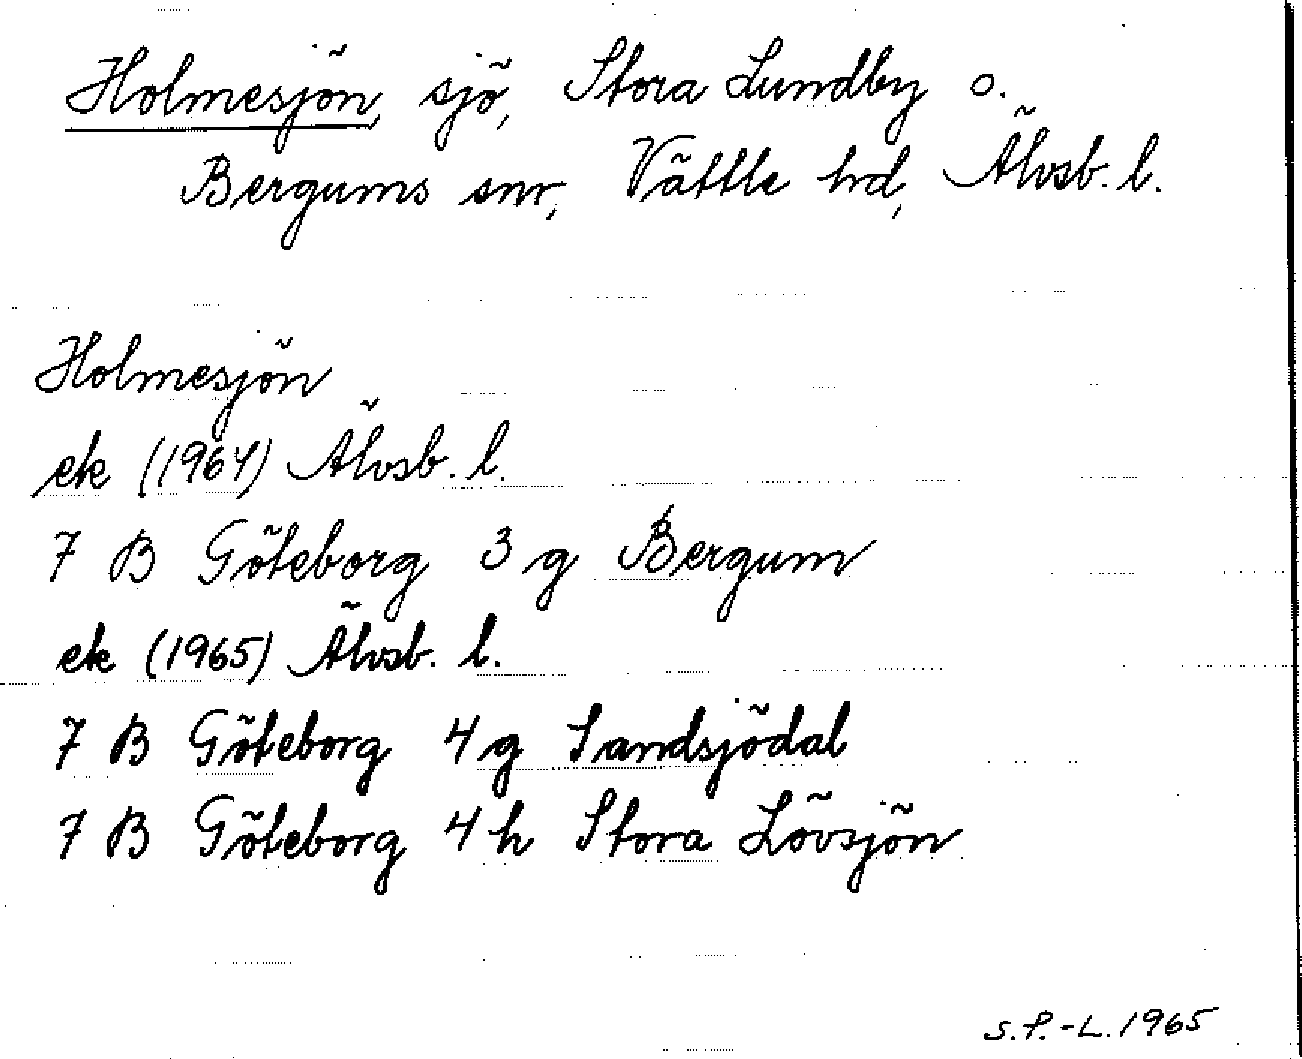 Holmesjön, sjö, Stora Lundby o.
Bergums snr, Vättle hd, Älvsb. l.
Holmesjön
ek (1964) Älvsb. l.
7 B Göteborg 3 g Bergum
ek (1965) Älvsb. l.
7 B Göteborg 4 g Sandsjödal
7 B Göteborg 4 h Stora Lövsjön
S.P.-L. 1965